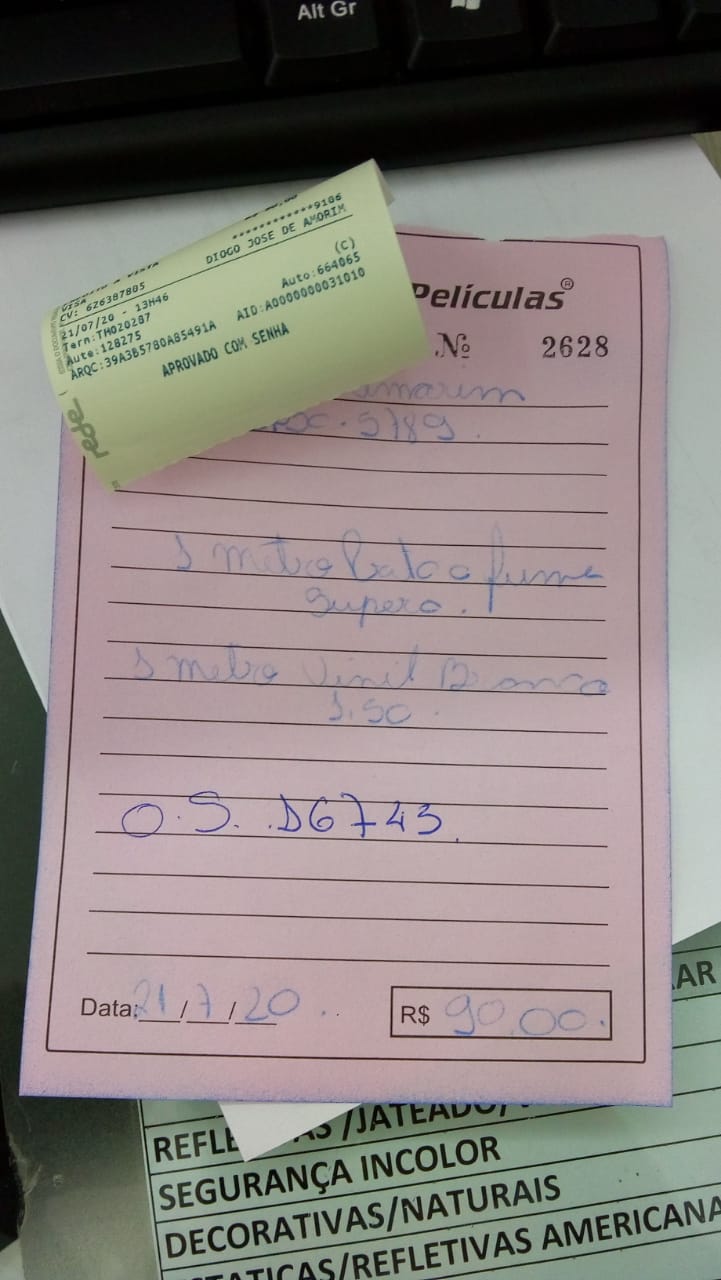 Alt Gr
************9106
DIOGO JOSE DE AMORIM
VISA
CV: 626387805
(C)
21/07/20 - 13H46
Auto:664065
Term:TM020287
Aute:128275
AID:A0000000031010
ARQC:39A3B5780A85491A
APROVADO COM SENHA
rede
Películas®
Nº 2628
5789.
1 metro fume
Supero.
1 metro Vinil Branco
1.50.
O.S. D6743.
Data: 21/7/20
R$ 90,00.
REFLE AS /JATEADO/
SEGURANÇA INCOLOR
DECORATIVAS/NATURAIS
TATICAS/REFLETIVAS AMERICANA